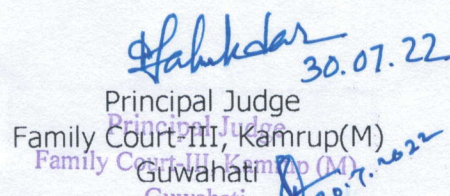 Talukdar
30.07.22
Principal Judge
Family Court-III, Kamrup(M)
Guwahati
Principal Judge
Family Court-III, Kamrup (M)
Guwahati
30.7.2022